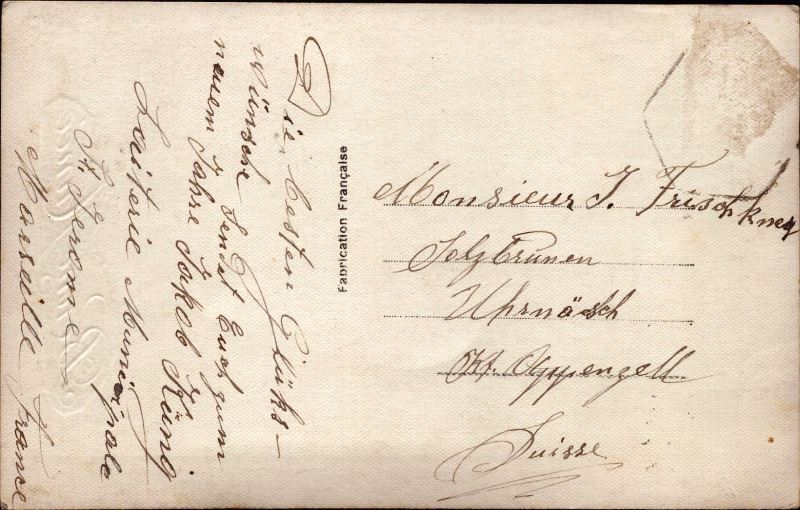 Die besten Glüks-
wünsche Sendet Euch zum
neuem Jahre Jakob Küng
Laiterie Municipale
St. Jerome
Marseille France
Fabrication Française
Monsieur J. Frischkneg
Uhrnäsch
Kt. Appenzell
Suisse